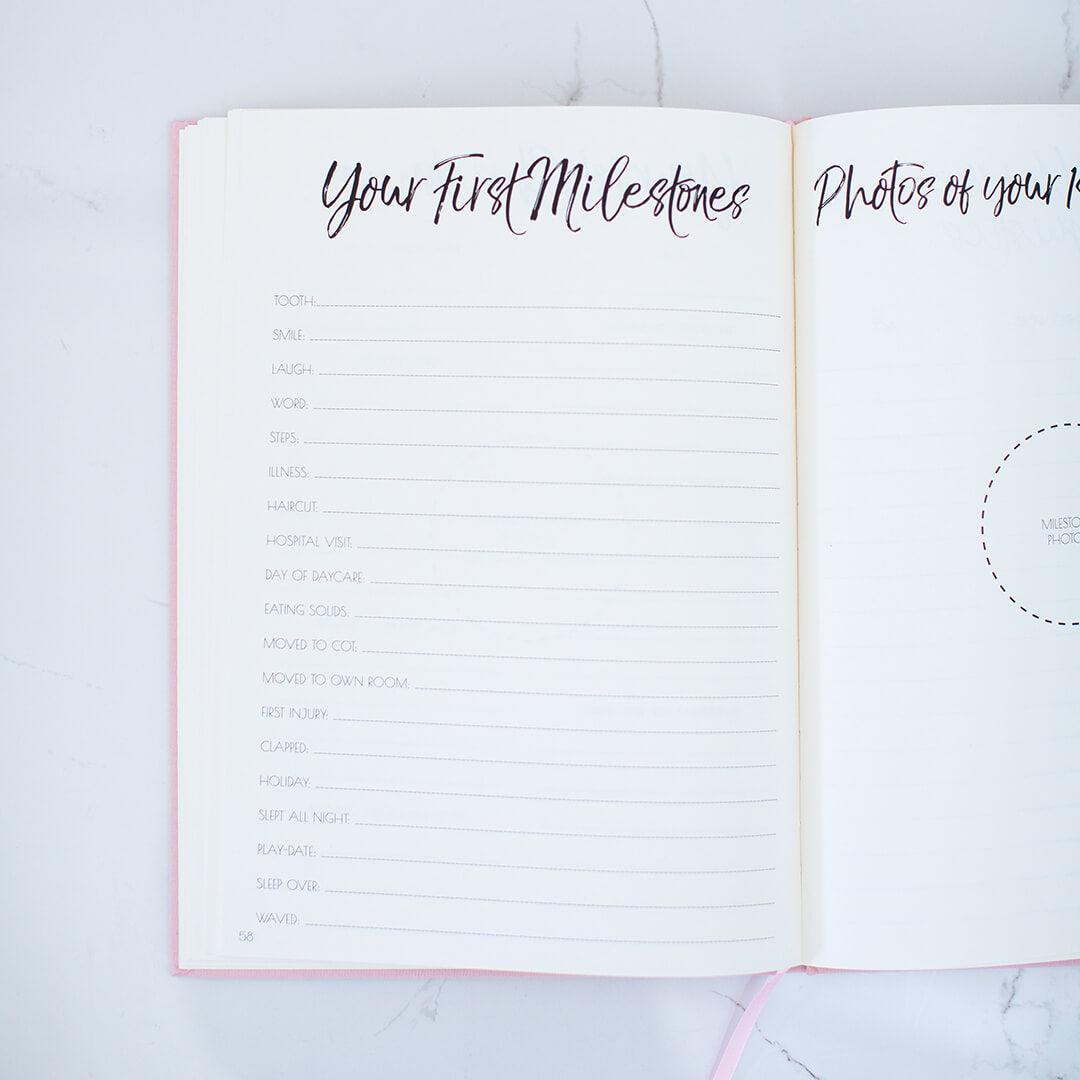 Your First Milestones
TOOTH:
SMILE:
LAUGH:
WORD:
STEPS:
ILLNESS:
HAIRCUT:
HOSPITAL VISIT:
DAY OF DAYCARE:
EATING SOLIDS:
MOVED TO COT:
MOVED TO OWN ROOM:
FIRST INJURY:
CLAPPED:
HOLIDAY:
SLEPT ALL NIGHT:
PLAY-DATE:
SLEEP OVER:
WAVED:
58
Photos of your
MILESTO
PHOTO